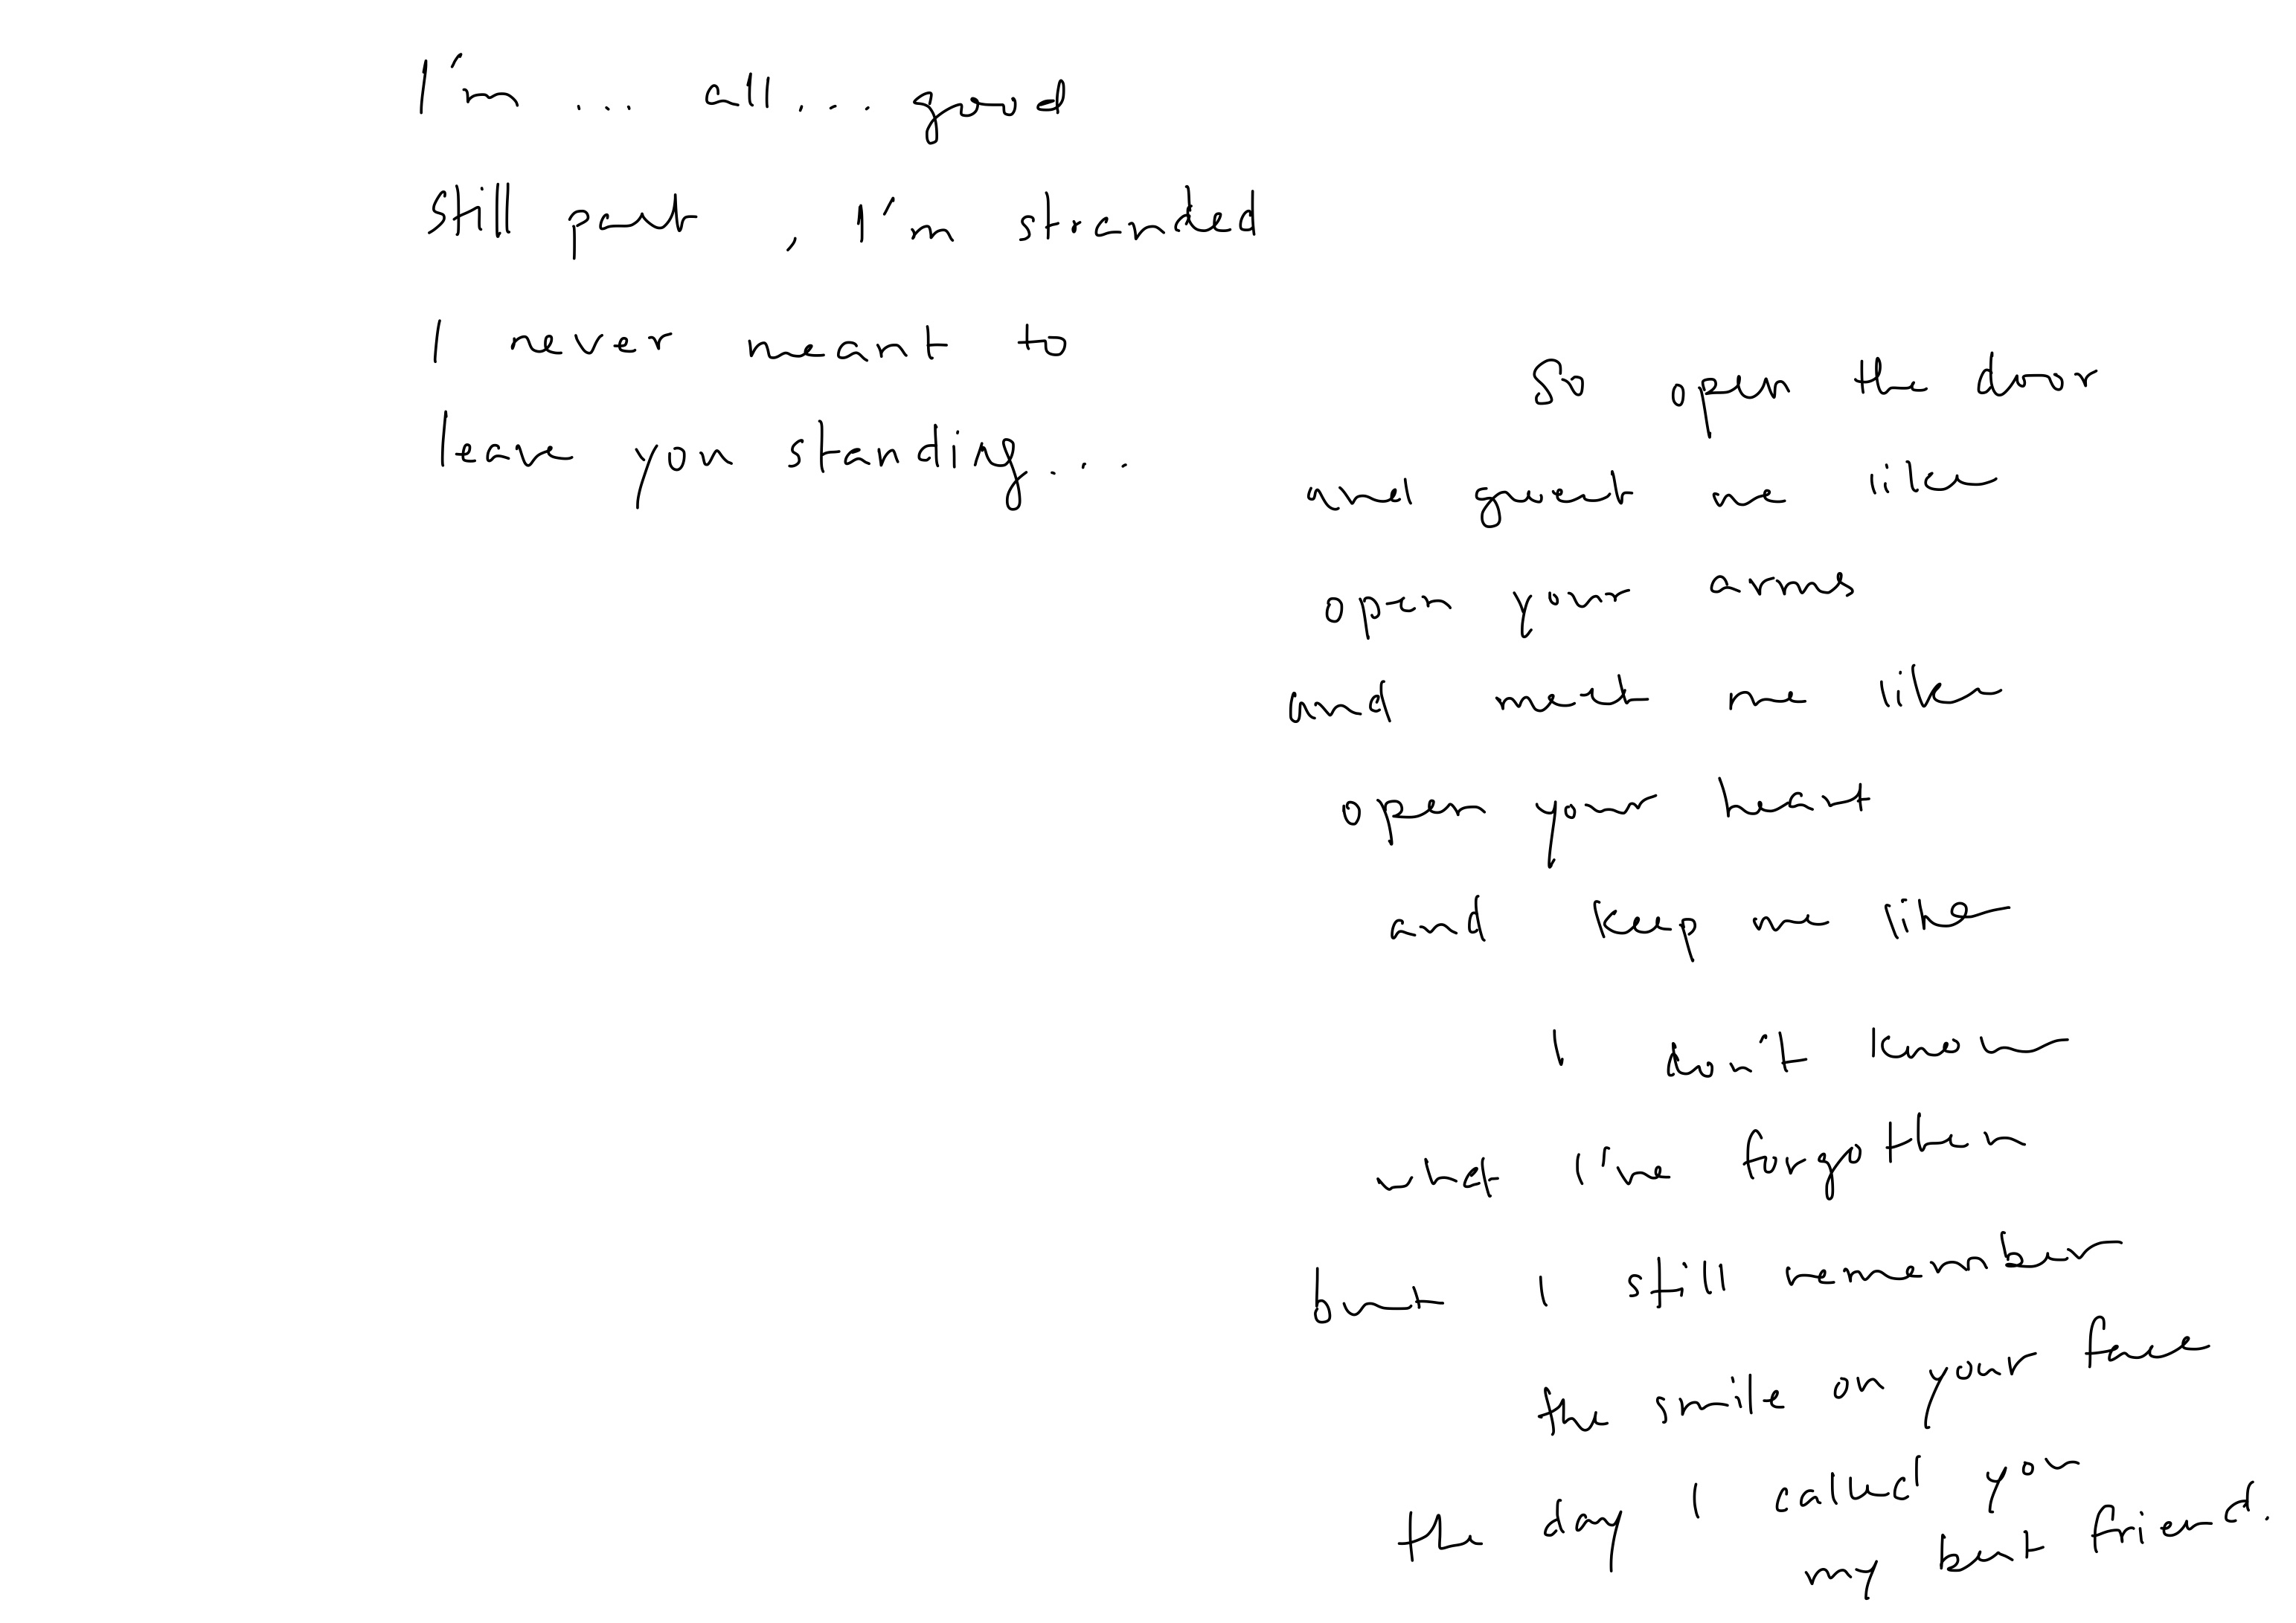 I'm ... all ... good
Still put, I'm stranded
I never meant to
leave you standing...
So open the door
and greet me like
open your arms
and meet me like
open your heart
and keep me like
I don't know
what I've forgotten
but I still remember
the smile on your face
the day I called you
my best friend.